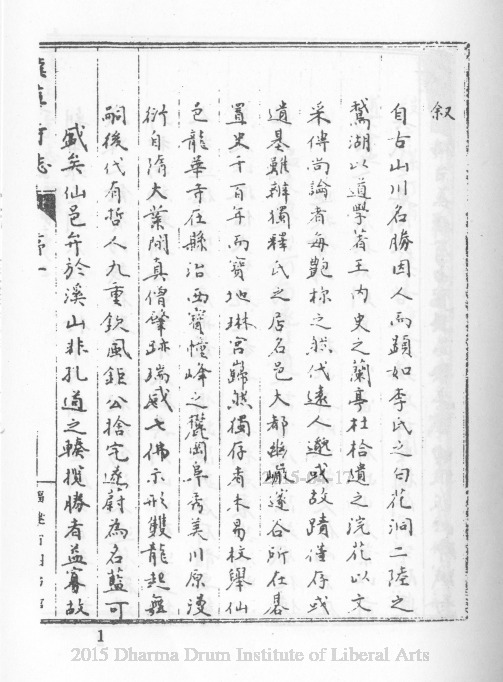 叙
自古山川名勝因人而顯如李氏之白花洞二陸之
鵞湖以道學著王内史之蘭亭杜拾遺之浣花以文
采傳尚論者每艷稱之然代遠人邈或故蹟僅存或
遺基難辨獨釋氏之居名邑大都幽巖邃谷所在碁
置史千百年而寳地琳宫歸然獨存者未易枚舉仙
邑龍華寺在縣治西寳幢峰之麓岡阜秀美川原漫
衍自隋大業間真僧肇跡瑞感七佛示形雙龍起無
嗣後代有哲人九重欽風鉅公捨宅遂蔚為名藍可
盛矣仙邑弁於溪山非孔道之輳攬勝者益寡故
龍華寺志
序一
1
2015-04-17
2015 Dharma Drum Institute of Liberal Arts